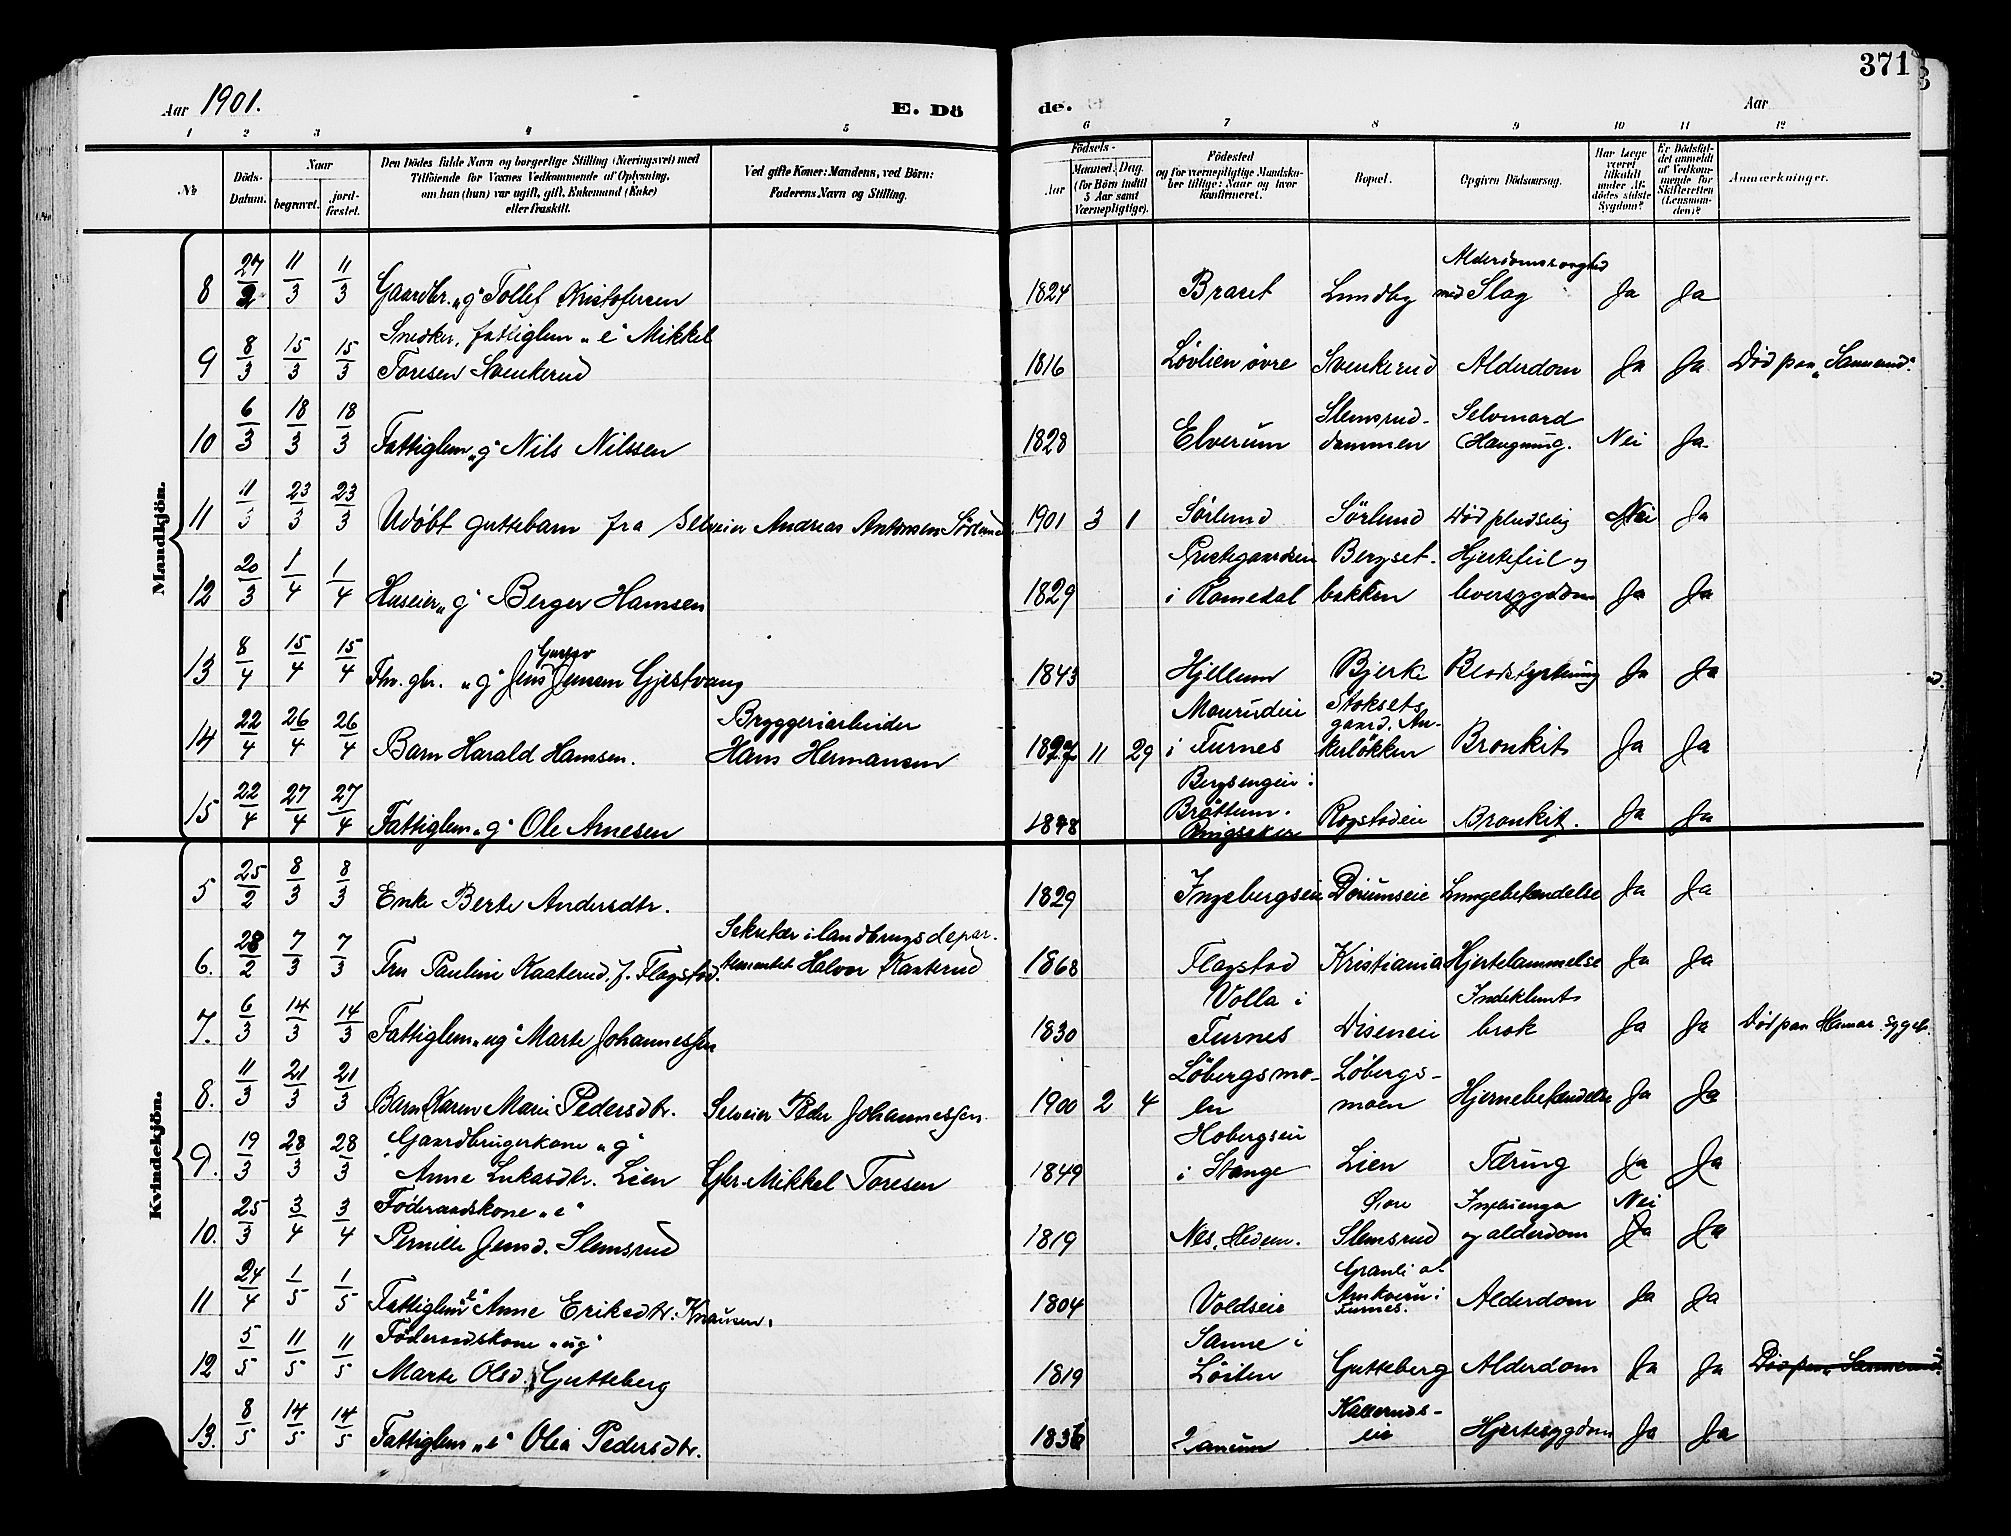 371
Aar 1901.
E. Döde.
Aar
1 2 3 4 5 6 7 8 9 10 11 12
No
Döds-Datum.
Naar
begravet.
jordfæstet.
Den Dödes fulde Navn og borgerlige Stilling (Næringsvei) med
Tilföiende for Voxnes Vedkommende af Oplysning,
om han (hun) var ugift, gift, Enkemand (Enke)
eller fraskilt.
Ved gifte Koner: Mandens, ved Börn:
Faderens Navn og Stilling.
Födsels-
Aar
Maaned. Dag.
(for Börn indtil
5 Aar samt
Værnepligtige).
Födested
og for værnepligtige Mandskaber
tillige: Naar og hvor
konfirmeret.
Bopæl.
Opgiven Dödsaarsag.
Har Læge
været
tilkaldt
under Afdödes
sidste
Sygdom?
Er Dödsfaldet
anmeldt
af Vedkommende
for
Skifteretten
(Lensmanden)?
Anmærkninger.
Mandkjön.
8 27/2 11/3 11/3 Gaardbr. "g" Tollef Kristofersen 1824 Braset Lundby Alderdomssvaghed med Slag Ja Ja
9 8/3 15/3 15/3 Snedker, fattiglem "e" Mikkel
Toresen Svenkerud 1816 Lövlien övre Svenkerud Alderdom Ja Ja Död paa "Sannerud".
10 6/3 18/3 18/3 Fattiglem "g" Nils Nilssen 1828 Elverum Slemsruddammen Selvmord (Hængning. Nei Ja
11 11/3 23/3 23/3 Udöbt guttebarn fra Selveier Andreas Antonsen Sörlund 1901 3 1 Sörlund Sörlund Död pludselig Nei Ja
12 20/3 1/4 1/4 Huseier "g" Berger Hansen 1829 Prestegaardseie i Romedal Bergsetbakken Hjertefeil og leversygdom Ja Ja
13 8/4 15/4 15/4 Fhv. gbr. "g" Jens Gustav Jensen Gjestvang 1843 Hjellum Bjerke Blodstyrtning Ja Ja
14 22/4 26/4 26/4 Barn Harald Hansen. Bryggeriarbeider
Hans Hermansen 1897 11 29 Maurudeie i Furnes Stoksetsgaard. Ankerlökken Bronkit Ja Ja
15 22/4 27/4 27/4 Fattiglem "g" Ole Arnesen 1848 Bergsengeie i Bröttum. Ringsaker Rogstadeie Bronkit. Ja Ja
Kvindekjön.
5 25/2 8/3 8/3 Enke Berte Andersdtr. 1829 Ingebergseie Dörumseie Lungebetændelse Ja Ja
6. 28/2 7/3 7/3 Fru Pauline Kaaterud f. Flagstad. Sekretær i landbrugsdepartementet
Halvor Kaaterud 1868 Flagstad Kristiania Hjertelammelse Ja Ja
7. 6/3 14/3 14/3 Fattiglem "ug" Marte Johannesssen 1830 Volla i Furnes Diseneie Indeklemt brok Ja Ja Död paa Hamar sygeh.
8. 11/3 21/3 21/3 Barn Karen Marie Pedersdtr. Selveier Peder Johannessen 1900 2 4 Löbergsmoen Löbergsmoen Hjernebetændelse Ja Ja
9. 19/3 28/3 28/3 Gaardbrugerkone "g"
Anne Lukasdtr. Lien Gbr. Mikkel Toresen 1849 Hobergseie i Stange Lien Tæring Ja Ja
10. 25/3 3/4 3/4 Föderaadskone "e"
Pernille Jensd. Slemsrud 1819 Nes, Hedem. Övre Slemsrud Influenza og alderdom Nei Ja Ja
11 24/4 1/5 1/5 Fattiglem "e" Anne Eriksdtr. Knausen. 1804 Voldseie Granli af Arnkvern i Furnes. Alderdom Ja Ja
12 5/5 11/5 11/5 Föderaadskone "ug"
Marte Olsd. Gutteberg 1819 Sanne i Löiten Gutteberg Alderdom Ja Ja Död paa "Sannerud".
13. 8/5 14/5 14/5 Fattiglem "e" Olea Pedersdtr. 1836 Vanum Kallerudseie Hjertesygdom Ja Ja